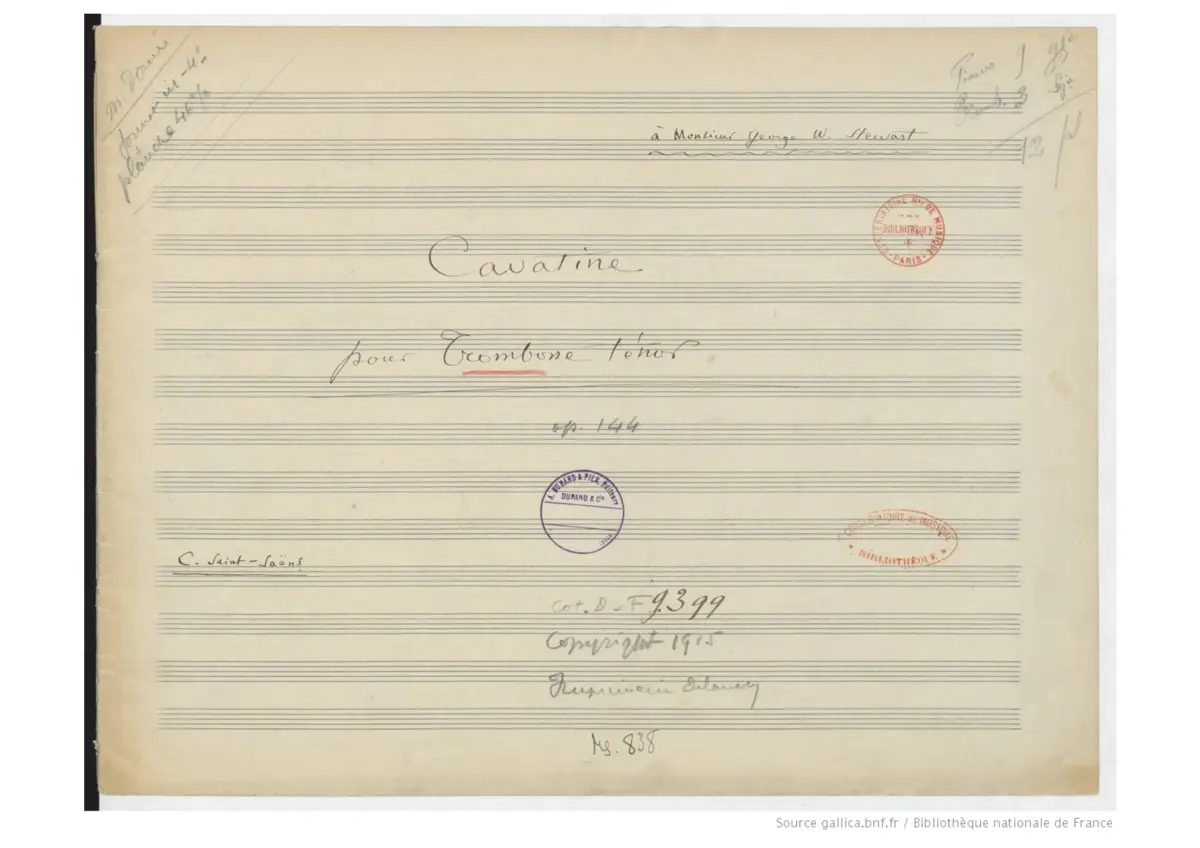 M Douin
format in-4º
planche 46 %
Piano 9
Tromb. 3
12 p
à Monsieur George W. Stewart
CONSERVATOIRE NAL DE MUSIQUE
BIBLIOTHÈQUE
PARIS
Cavatine
pour Trombone ténor
op. 144
A. DURAND & FILS, Editeurs
DURAND & Cie
PARIS
CONSERVATOIRE DE MUSIQUE
BIBLIOTHÈQUE
C. Saint-Saëns
Cot. D & F 9399
Copyright 1915
Imprimerie Delanchy
Ms. 838
Source gallica.bnf.fr / Bibliothèque nationale de France